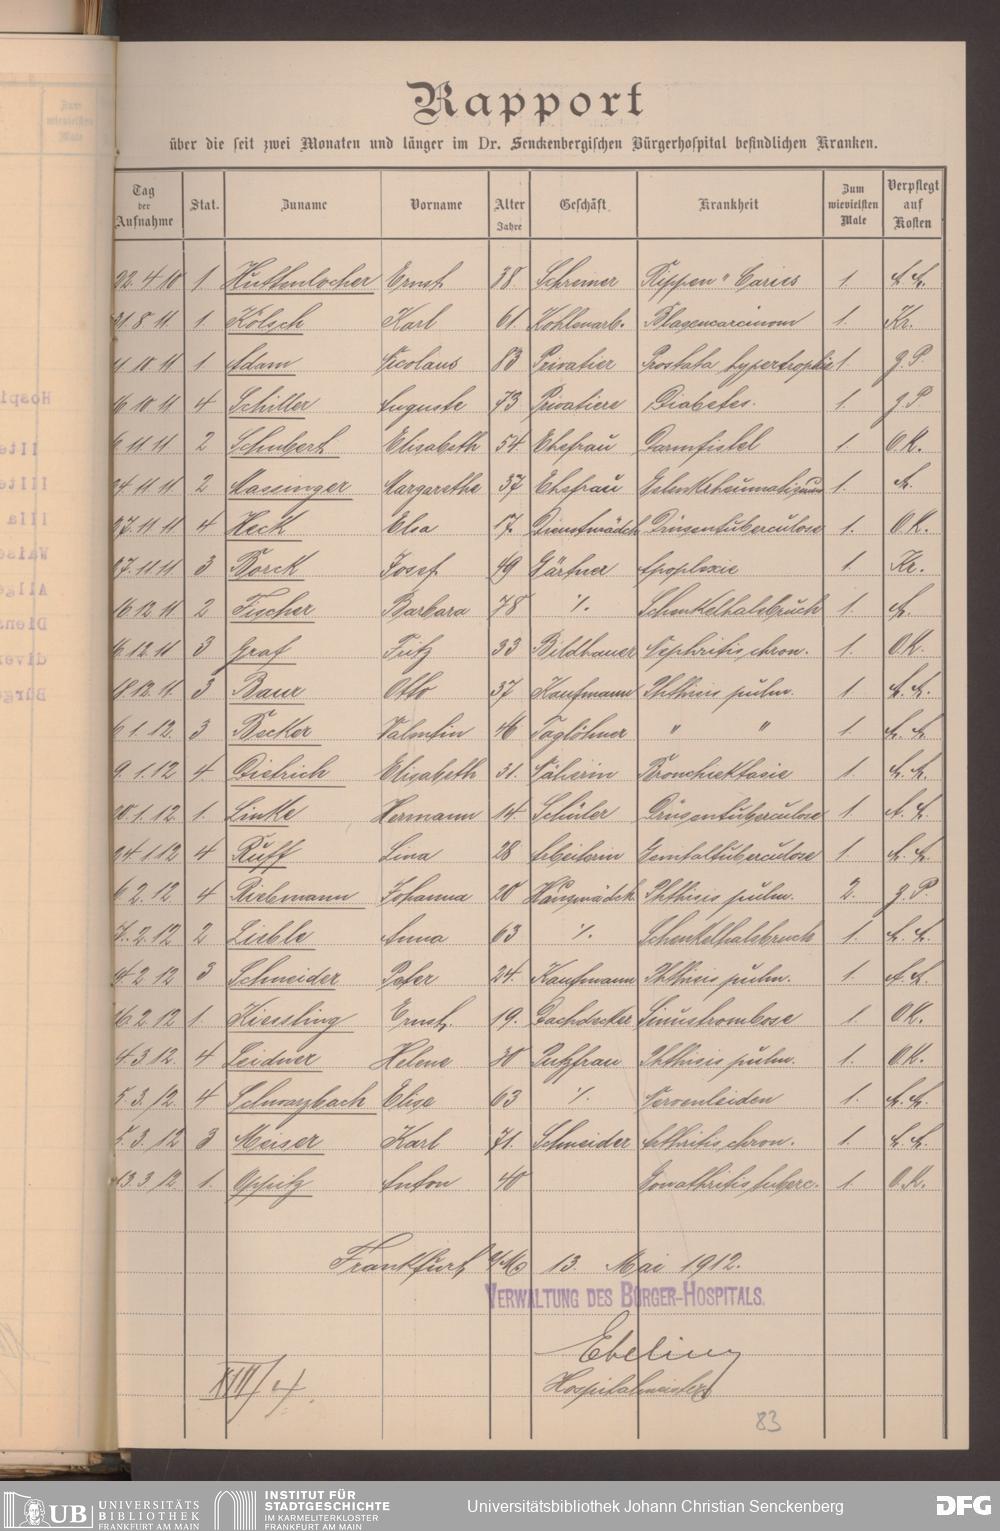 Rapport
über die seit zwei Monaten und länger im Dr. Senckenbergischen Bürgerhospital befindlichen Kranken.
Tag der Aufnahme | Stat. | Zuname | Vorname | Alter Jahre | Geschäft | Krankheit | Zum wievielsten Male | Verpflegt auf Kosten
22. 4 10 | 1 | Huttenlocher | Ernst | 38 | Schreiner | Rippen " Caries | 1. | A. A.
31 8 11 | 1. | Kölsch | Karl | 61. | Kohlenarb. | Magencarcinom | 1. | Kr.
4 10 11 | 1 | Adam | Nicolaus | 83 | Privatier | Prostata hypertrophie | 1. | g. P.
16 10 11 | 4 | Schiller | Auguste | 73 | Privatiere | Diabetes. | 1. | g. P
6 11 11 | 2 | Schubert | Elisabeth | 54 | Ehefrau | Darmfistel | 1 | O. K.
24 11 11 | 2 | Massinger | Margarethe | 37 | Ehefrau | Gelenkrheumatismus | 1. | A.
27. 11 11 | 4 | Heck | Elsa | 17. | Dienstmädch. | Drüsentuberculose | 1. | O K.
27. 11 11 | 3 | Borck | Josef | 49 | Gärtner | Apoplexie | 1. | Kr.
16 12 11 | 2 | Fischer | Barbara | 78 | ·/. | Schenkelhalsbruch | 1. | A.
16 12. 11 | 3 | Graf | Fritz | 33 | Bildhauer | Nephritis chron. | 1. | O K.
18. 12. 11. | 3 | Baur | Otto | 37 | Kaufmann | Phthisis pulm. | 1 | A. A.
6 1. 12. | 3 | Becker | Valentin | 46 | Taglöhner | " " | 1. | A. A.
9. 1. 12 | 4 | Dietrich | Elisabeth | 31. | Näherin | Bronchiektasie | 1. | A. A.
20. 1. 12. | 1. | Linke | Hermann | 14. | Schüler | Drüsentuberculose | 1. | A. A.
24. 1. 12 | 4 | Ruff | Lina | 28 | Arbeiterin | Genitaltuberculose | 1. | A. A.
6. 2. 12. | 4 | Riebmann | Johanna | 20 | Hausmädch. | Phthisis pulm. | 2. | g. P.
7. 2. 12 | 2 | Lieble | Anna | 63 | ·/. | Schenkelhalsbruch | 1. | A. A.
14 2 12 | 3 | Schneider | Peter | 24. | Kaufmann | Phthisis pulm. | 1. | A. A.
16. 2. 12 | 1. | Kiessling | Ernst. | 19. | Dachdecker | Sinustrombose | 1. | O K.
4. 3. 12. | 4 | Leidner | Helene | 30 | Putzfrau | Phthisis pulm. | 1. | O K.
5. 3. 12. | 4 | Schwarzbach | Elise | 63 | ·/. | Nervenleiden | 1. | A. A.
5. 3. 12 | 3 | Meiser | Karl | 71. | Schneider | Arthritis chron. | 1. | A. A.
13. 3. 12 | 1. | Opitz | Anton | 40 | Gonathritis tuberc. | 1. | O. K.
Frankfurt a/M, 13. Mai 1912.
VERWALTUNG DES BÜRGER-HOSPITALS.
Ebeling
Hospitalmeister
XIII/4.
83
UB UNIVERSITÄTS BIBLIOTHEK FRANKFURT AM MAIN
INSTITUT FÜR STADTGESCHICHTE IM KARMELITERKLOSTER FRANKFURT AM MAIN
Universitätsbibliothek Johann Christian Senckenberg
DFG